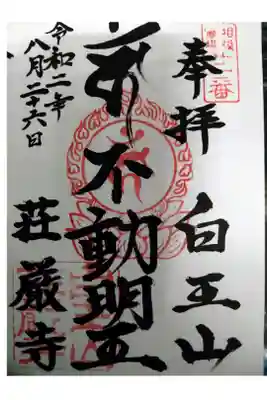 奉拝 白王山
不動明王
令和二年
八月二十六日
荘厳寺
番